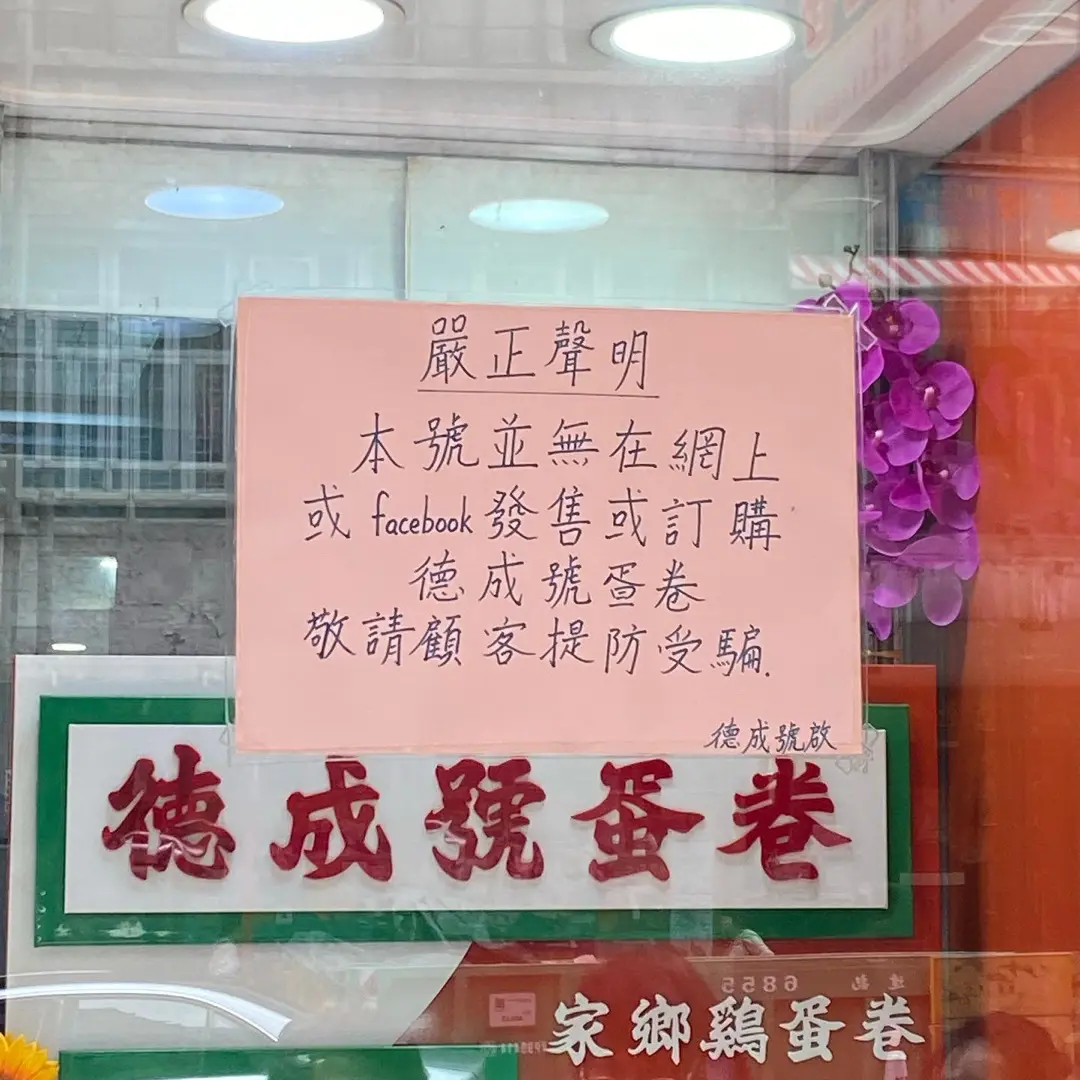 嚴正聲明
本號並無在網上
或facebook發售或訂購
德成號蛋卷
敬請顧客提防受騙.
德成號啟
德成號蛋卷
家鄉鷄蛋卷